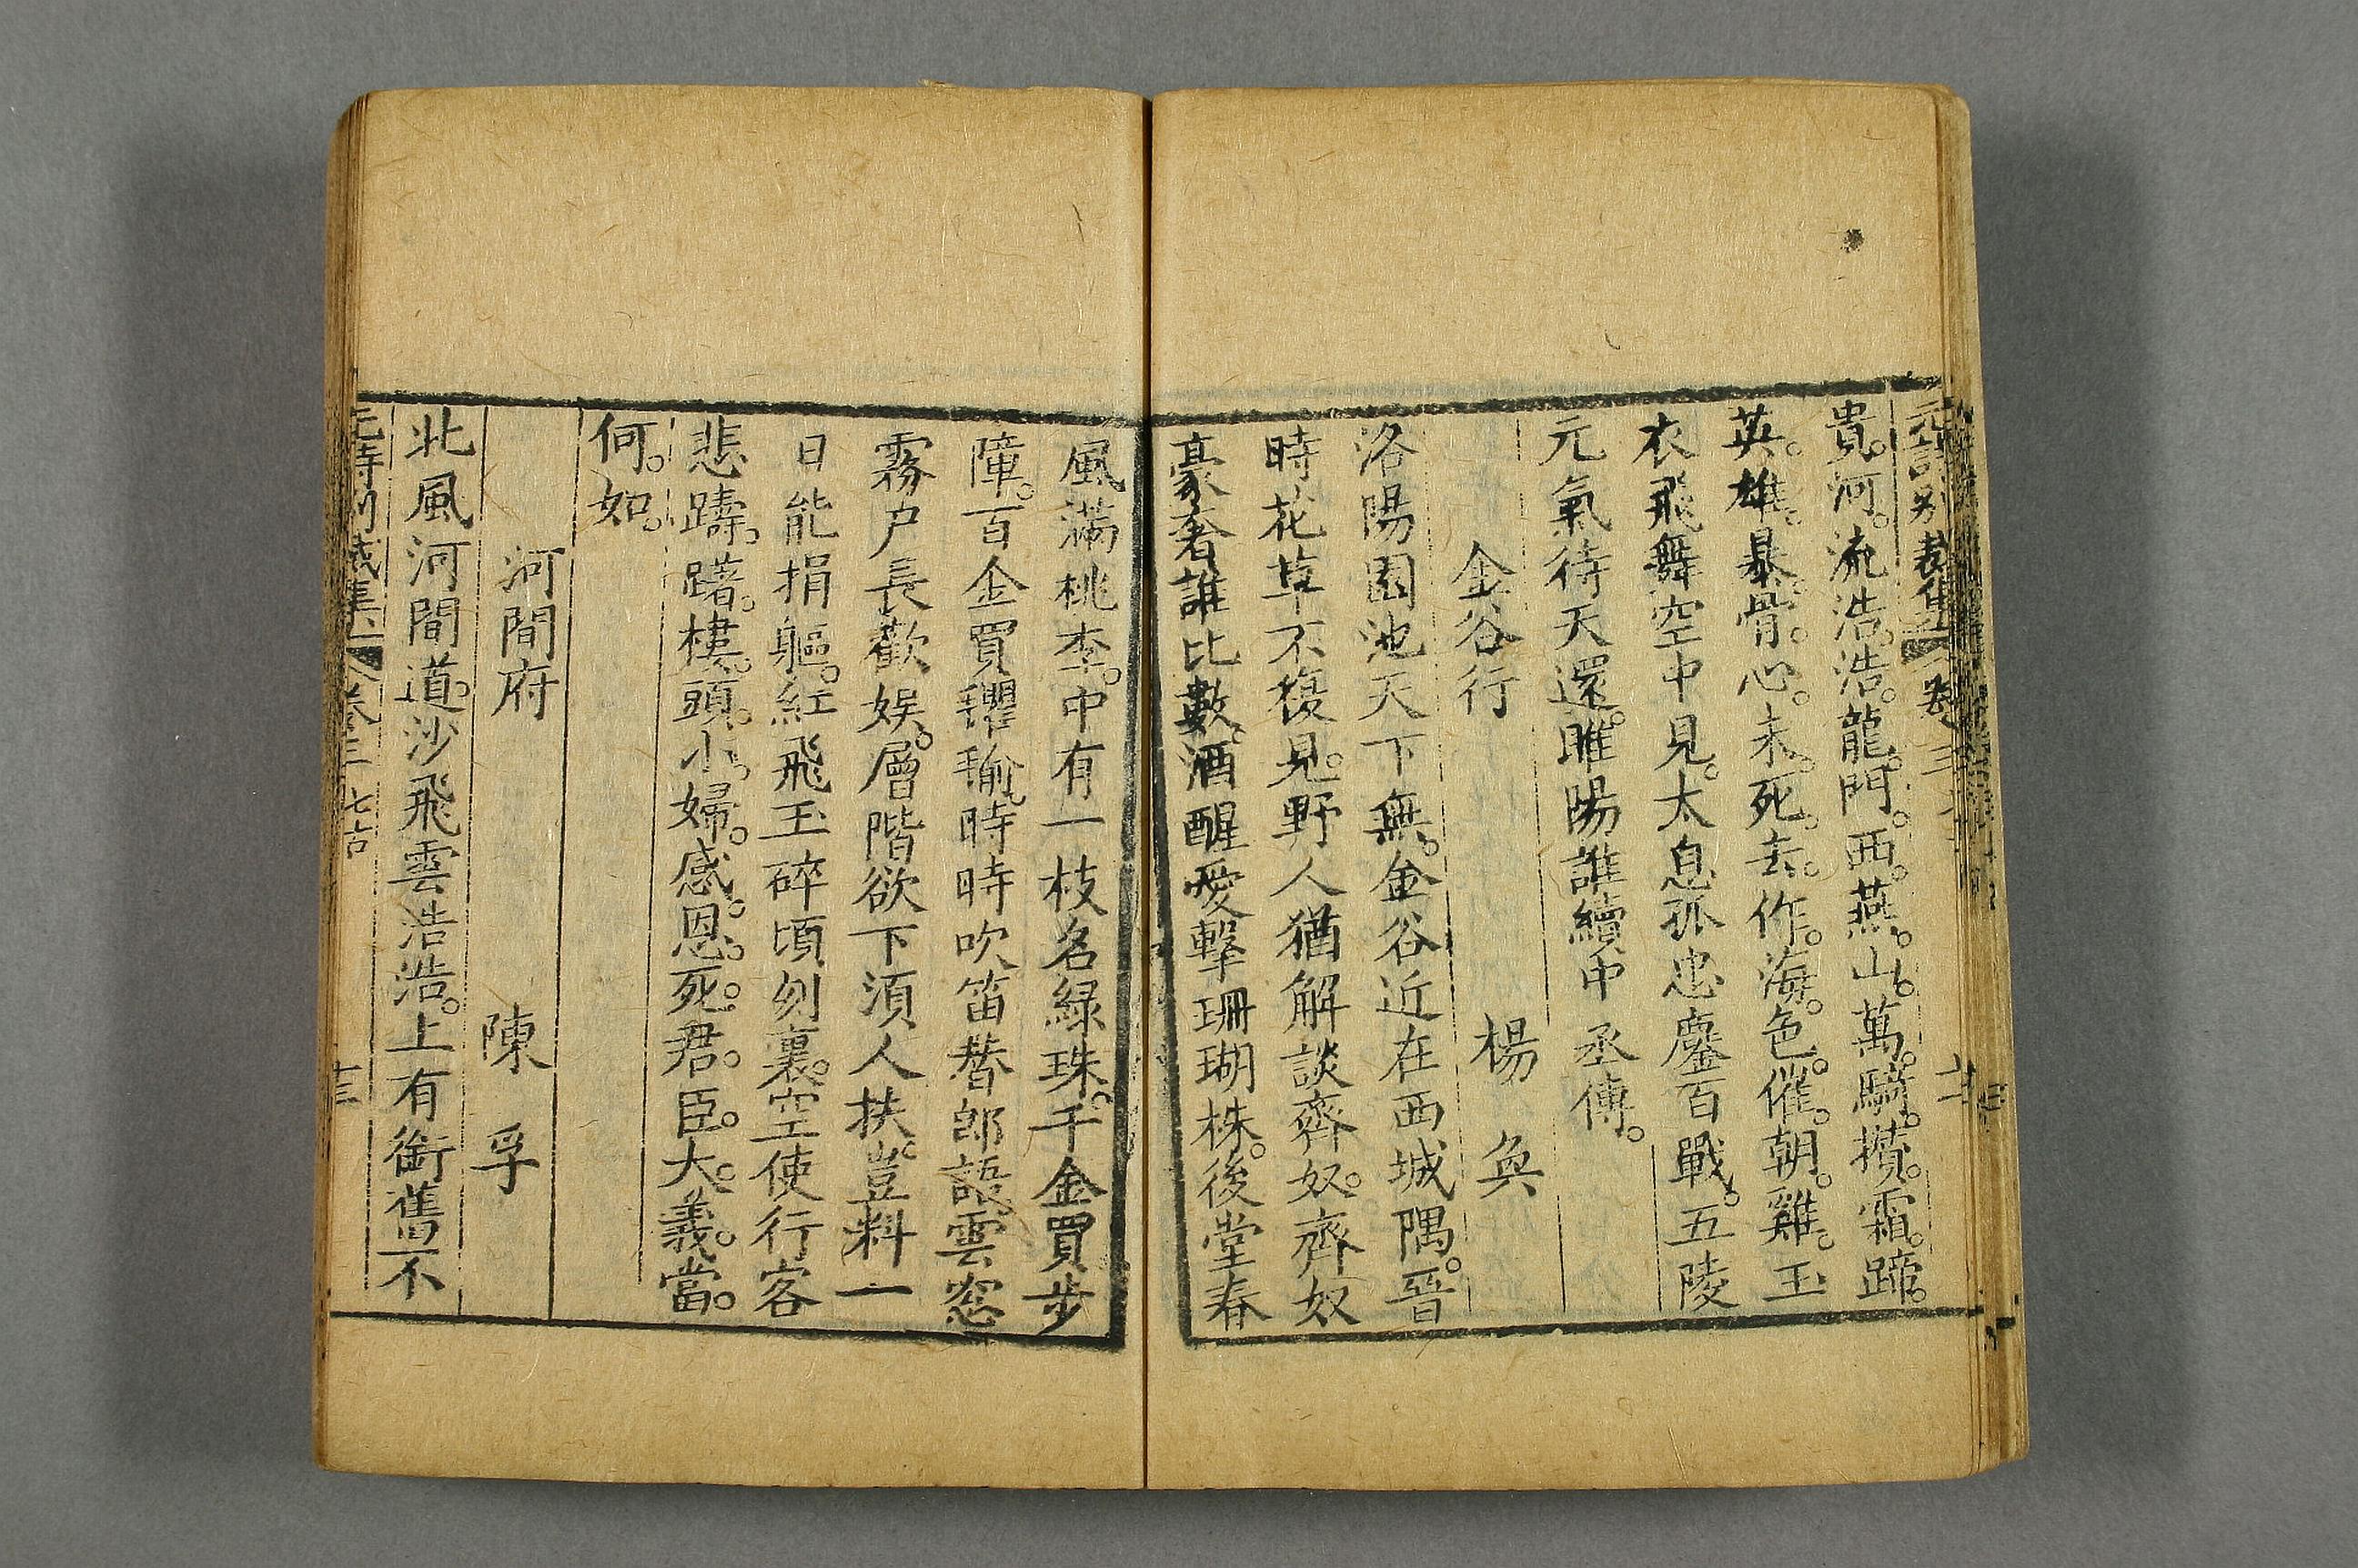 貴。河。流。浩。浩。龍。門。西。燕。山。萬。騎。攢。霜。蹄。
英。雄。暴。骨。心。未。死。去。作。海。色。催。朝。雞。玉
衣飛舞空中見。太息孤忠鏖百戰。五陵
元氣待天還。睢陽誰續中丞傳。
金谷行 楊奐
洛陽園池天下無。金谷近在西城隅。晉
時花草不復見。野人猶解談齊奴。齊奴
豪奢誰比數。酒醒愛擊珊瑚株。後堂春
風滿桃李。中有一枝名緑珠。千金買步
障。百金買㻴瑜。時時吹笛替郎語。雲窓
霧户長歡娱。層階欲下須人扶。豈料一
日能捐軀。紅飛玉碎頃刻裏。空使行客
悲躊。躇。樓。頭。小。婦。感。恩。死。君。臣。大。義。當。
何。如。
河間府 陳孚
北風河間道。沙飛雲浩浩。上有銜舊不
卷三 七古